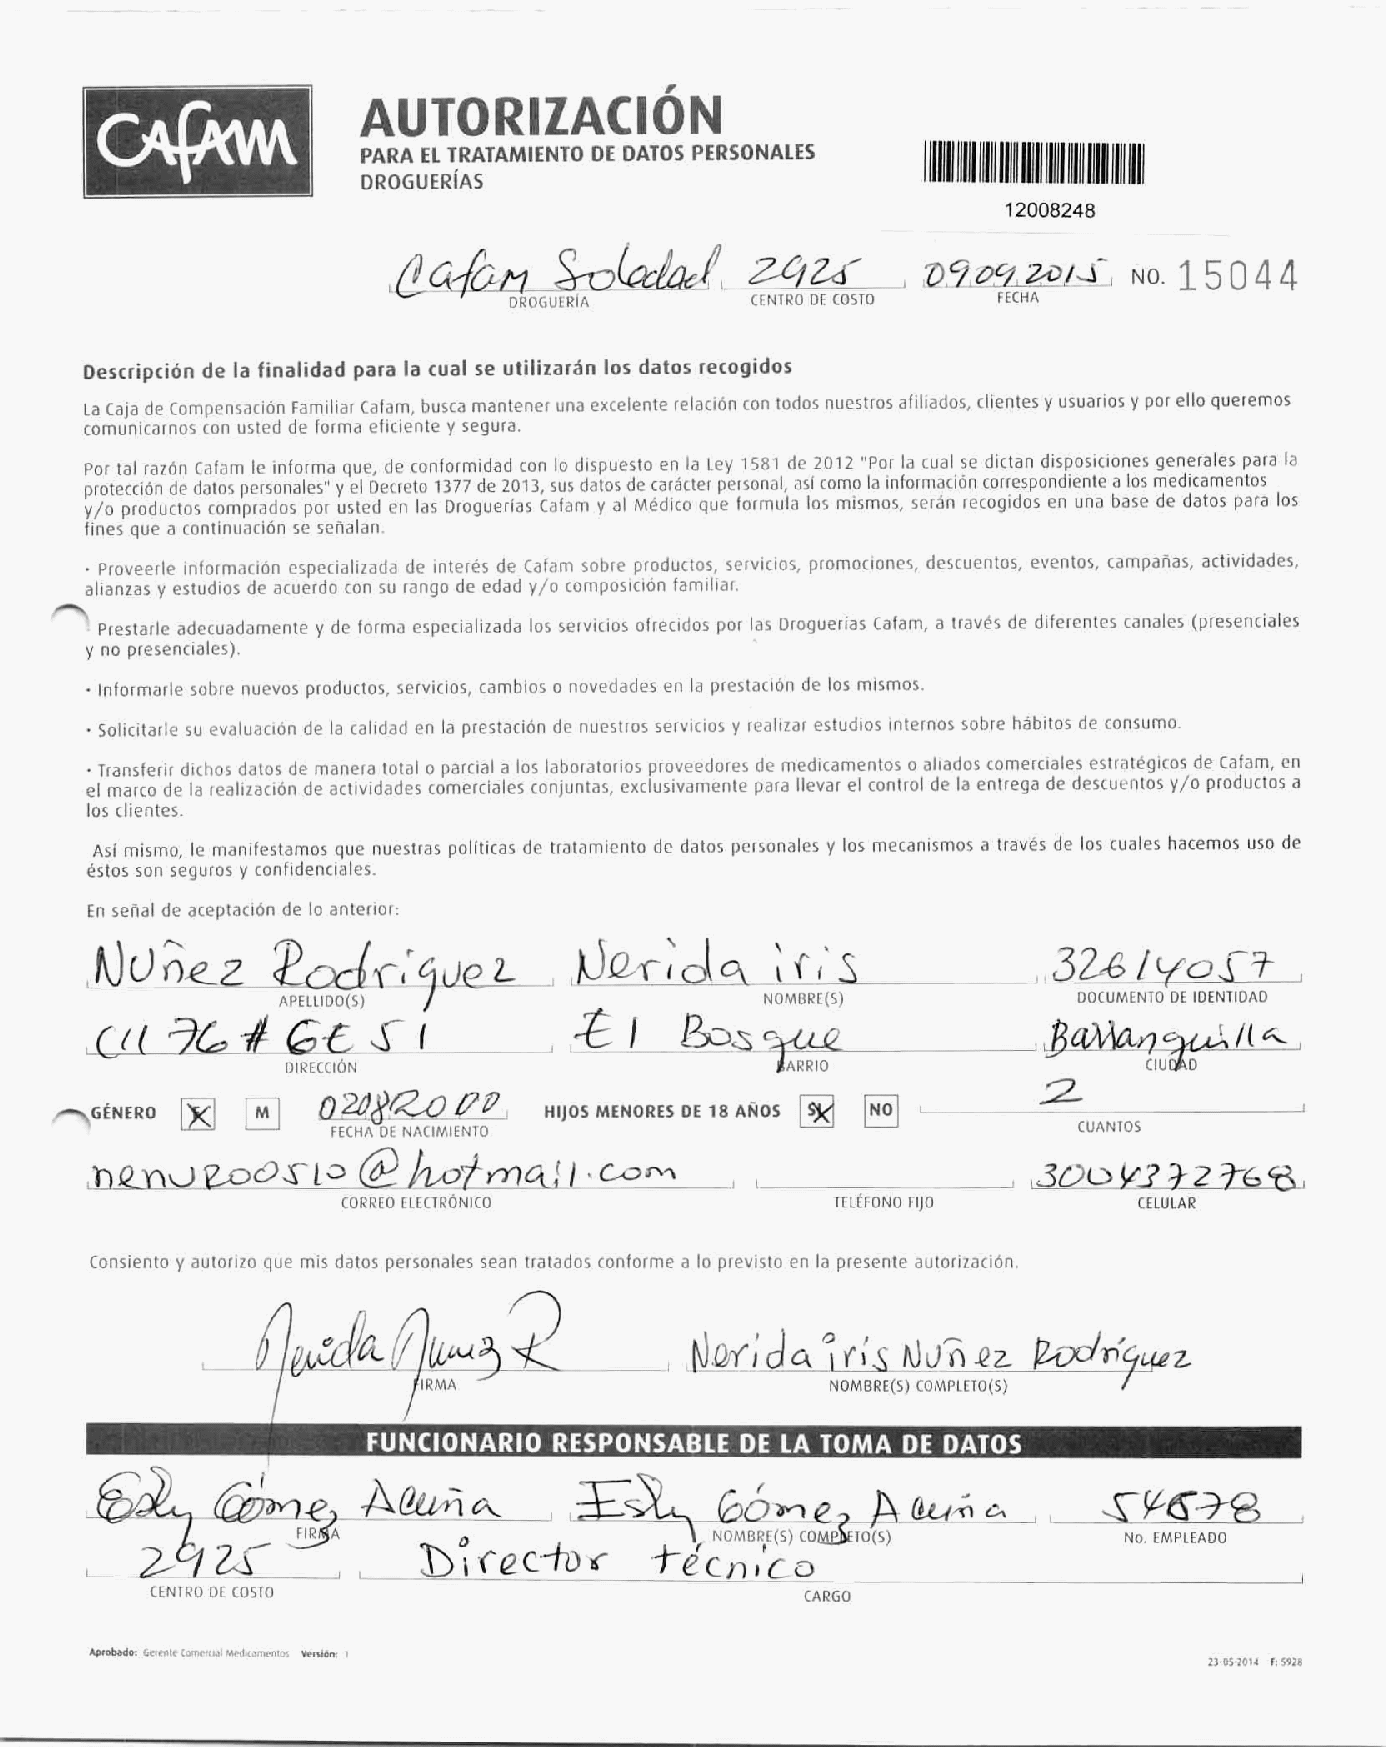 CAFAM
AUTORIZACIÓN
PARA EL TRATAMIENTO DE DATOS PERSONALES
DROGUERÍAS
12008248
Cafam Soledad 2925 09.09.2015 NO. 15044
DROGUERÍA CENTRO DE COSTO FECHA
Descripción de la finalidad para la cual se utilizarán los datos recogidos
La Caja de Compensación Familiar Cafam, busca mantener una excelente relación con todos nuestros afiliados, clientes y usuarios y por ello queremos
comunicarnos con usted de forma eficiente y segura.
Por tal razón Cafam le informa que, de conformidad con lo dispuesto en la Ley 1581 de 2012 "Por la cual se dictan disposiciones generales para la
protección de datos personales" y el Decreto 1377 de 2013, sus datos de carácter personal, así como la información correspondiente a los medicamentos
y/o productos comprados por usted en las Droguerías Cafam y al Médico que formula los mismos, serán recogidos en una base de datos para los
fines que a continuación se señalan.
· Proveerle información especializada de interés de Cafam sobre productos, servicios, promociones, descuentos, eventos, campañas, actividades,
alianzas y estudios de acuerdo con su rango de edad y/o composición familiar.
· Prestarle adecuadamente y de forma especializada los servicios ofrecidos por las Droguerías Cafam, a través de diferentes canales (presenciales
y no presenciales).
· Informarle sobre nuevos productos, servicios, cambios o novedades en la prestación de los mismos.
· Solicitarle su evaluación de la calidad en la prestación de nuestros servicios y realizar estudios internos sobre hábitos de consumo.
· Transferir dichos datos de manera total o parcial a los laboratorios proveedores de medicamentos o aliados comerciales estratégicos de Cafam, en
el marco de la realización de actividades comerciales conjuntas, exclusivamente para llevar el control de la entrega de descuentos y/o productos a
los clientes.
Así mismo, le manifestamos que nuestras políticas de tratamiento de datos personales y los mecanismos a través de los cuales hacemos uso de
éstos son seguros y confidenciales.
En señal de aceptación de lo anterior:
Nuñez Rodriguez Nerida iris 32614057
APELLIDO(S) NOMBRE(S) DOCUMENTO DE IDENTIDAD
Cll 76 # 6E 51 El Bosque Barranquilla
DIRECCIÓN BARRIO CIUDAD
GÉNERO X M HIJOS MENORES DE 18 AÑOS SI X NO 2
FECHA DE NACIMIENTO CUANTOS
nenu200510@hotmail.com 3004372768
CORREO ELECTRÓNICO TELÉFONO FIJO CELULAR
Consiento y autorizo que mis datos personales sean tratados conforme a lo previsto en la presente autorización.
Nerida Nunez R Nerida iris Nuñez Rodríguez
FIRMA NOMBRE(S) COMPLETO(S)
FUNCIONARIO RESPONSABLE DE LA TOMA DE DATOS
Esly Gómez Acuña Esly Gómez Acuña 54678
FIRMA NOMBRE(S) COMPLETO(S) No. EMPLEADO
2925 Director técnico
CENTRO DE COSTO CARGO
Aprobado: Gerente Comercial Medicamentos Versión: 1
23-05-2014 F: 5928